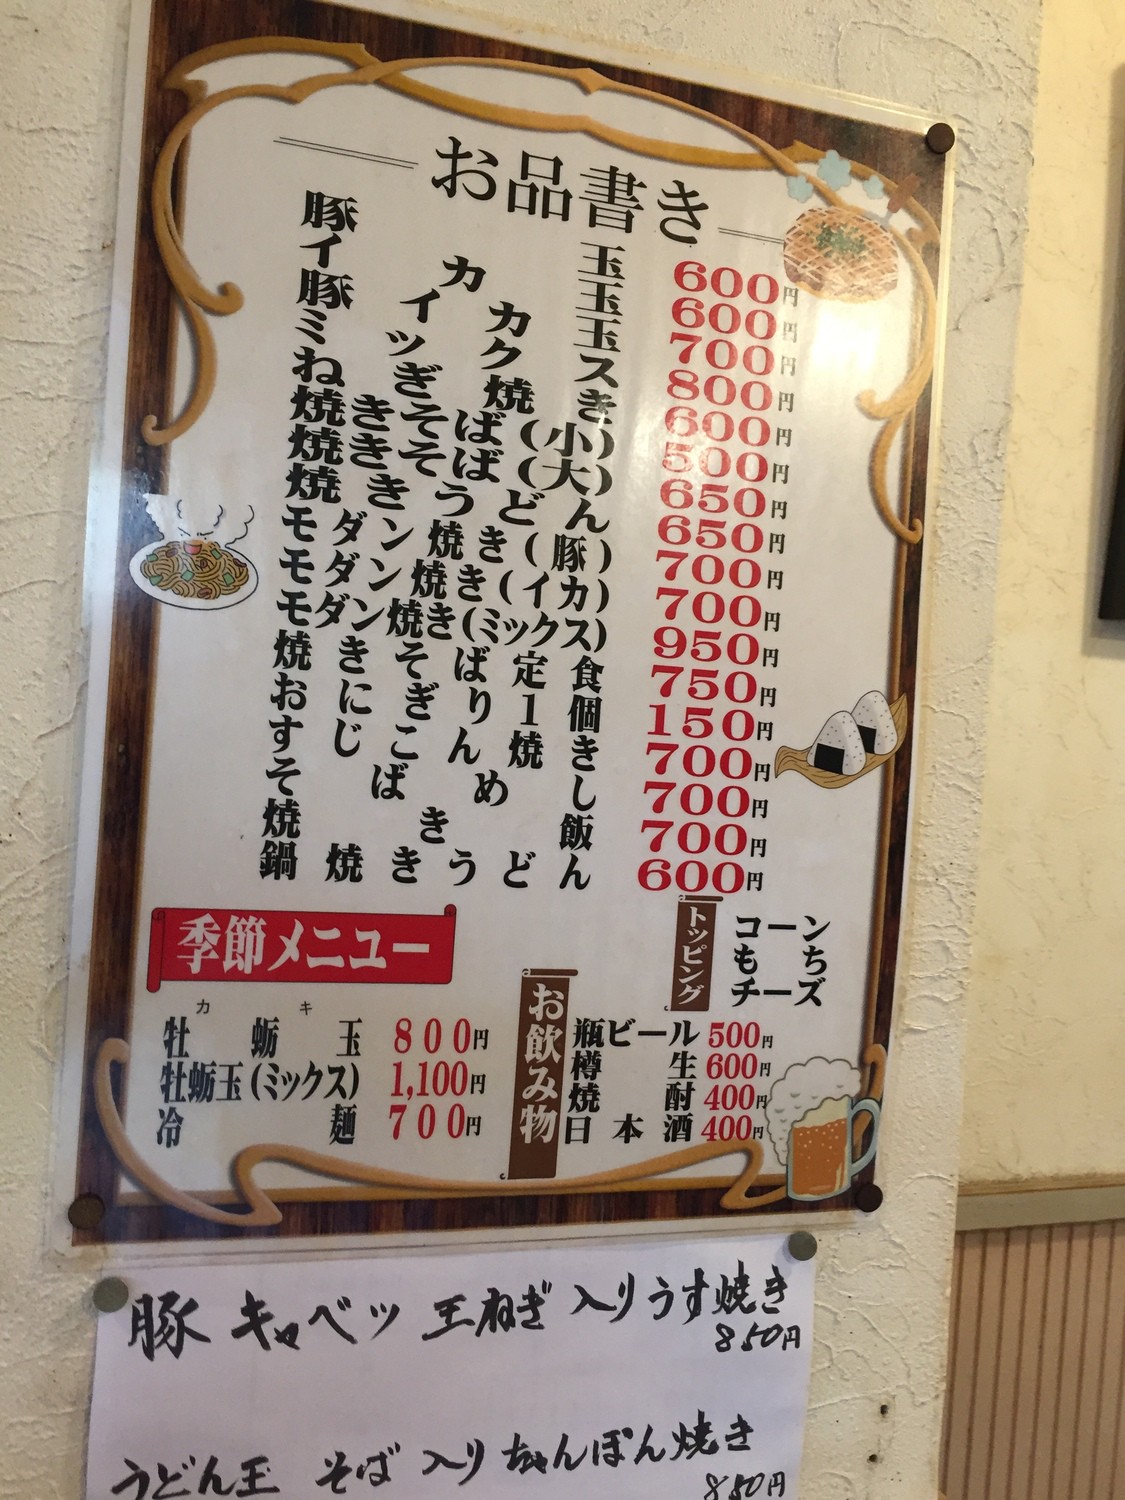 お品書き
豚玉 600円
イカ玉 600円
豚イカ玉 700円
ミックス 800円
ねぎ焼き 600円
焼きそば(小) 500円
焼きそば(大) 650円
焼きうどん 650円
モダン焼き(豚) 700円
モダン焼き(イカ) 700円
モダン焼き(ミックス) 950円
焼きそば定食 750円
おにぎり1個 150円
すじこん焼き 700円
そばめし 700円
焼き飯 700円
鍋焼きうどん 600円
トッピング
コーン
もち
チーズ
季節メニュー
カキ
牡蛎玉 800円
牡蛎玉(ミックス) 1,100円
冷麺 700円
お飲み物
瓶ビール 500円
樽生 600円
焼酎 400円
日本酒 400円
豚 キャベツ 玉ねぎ 入りうす焼き
850円
うどん玉 そば 入り ちゃんぽん焼き
850円